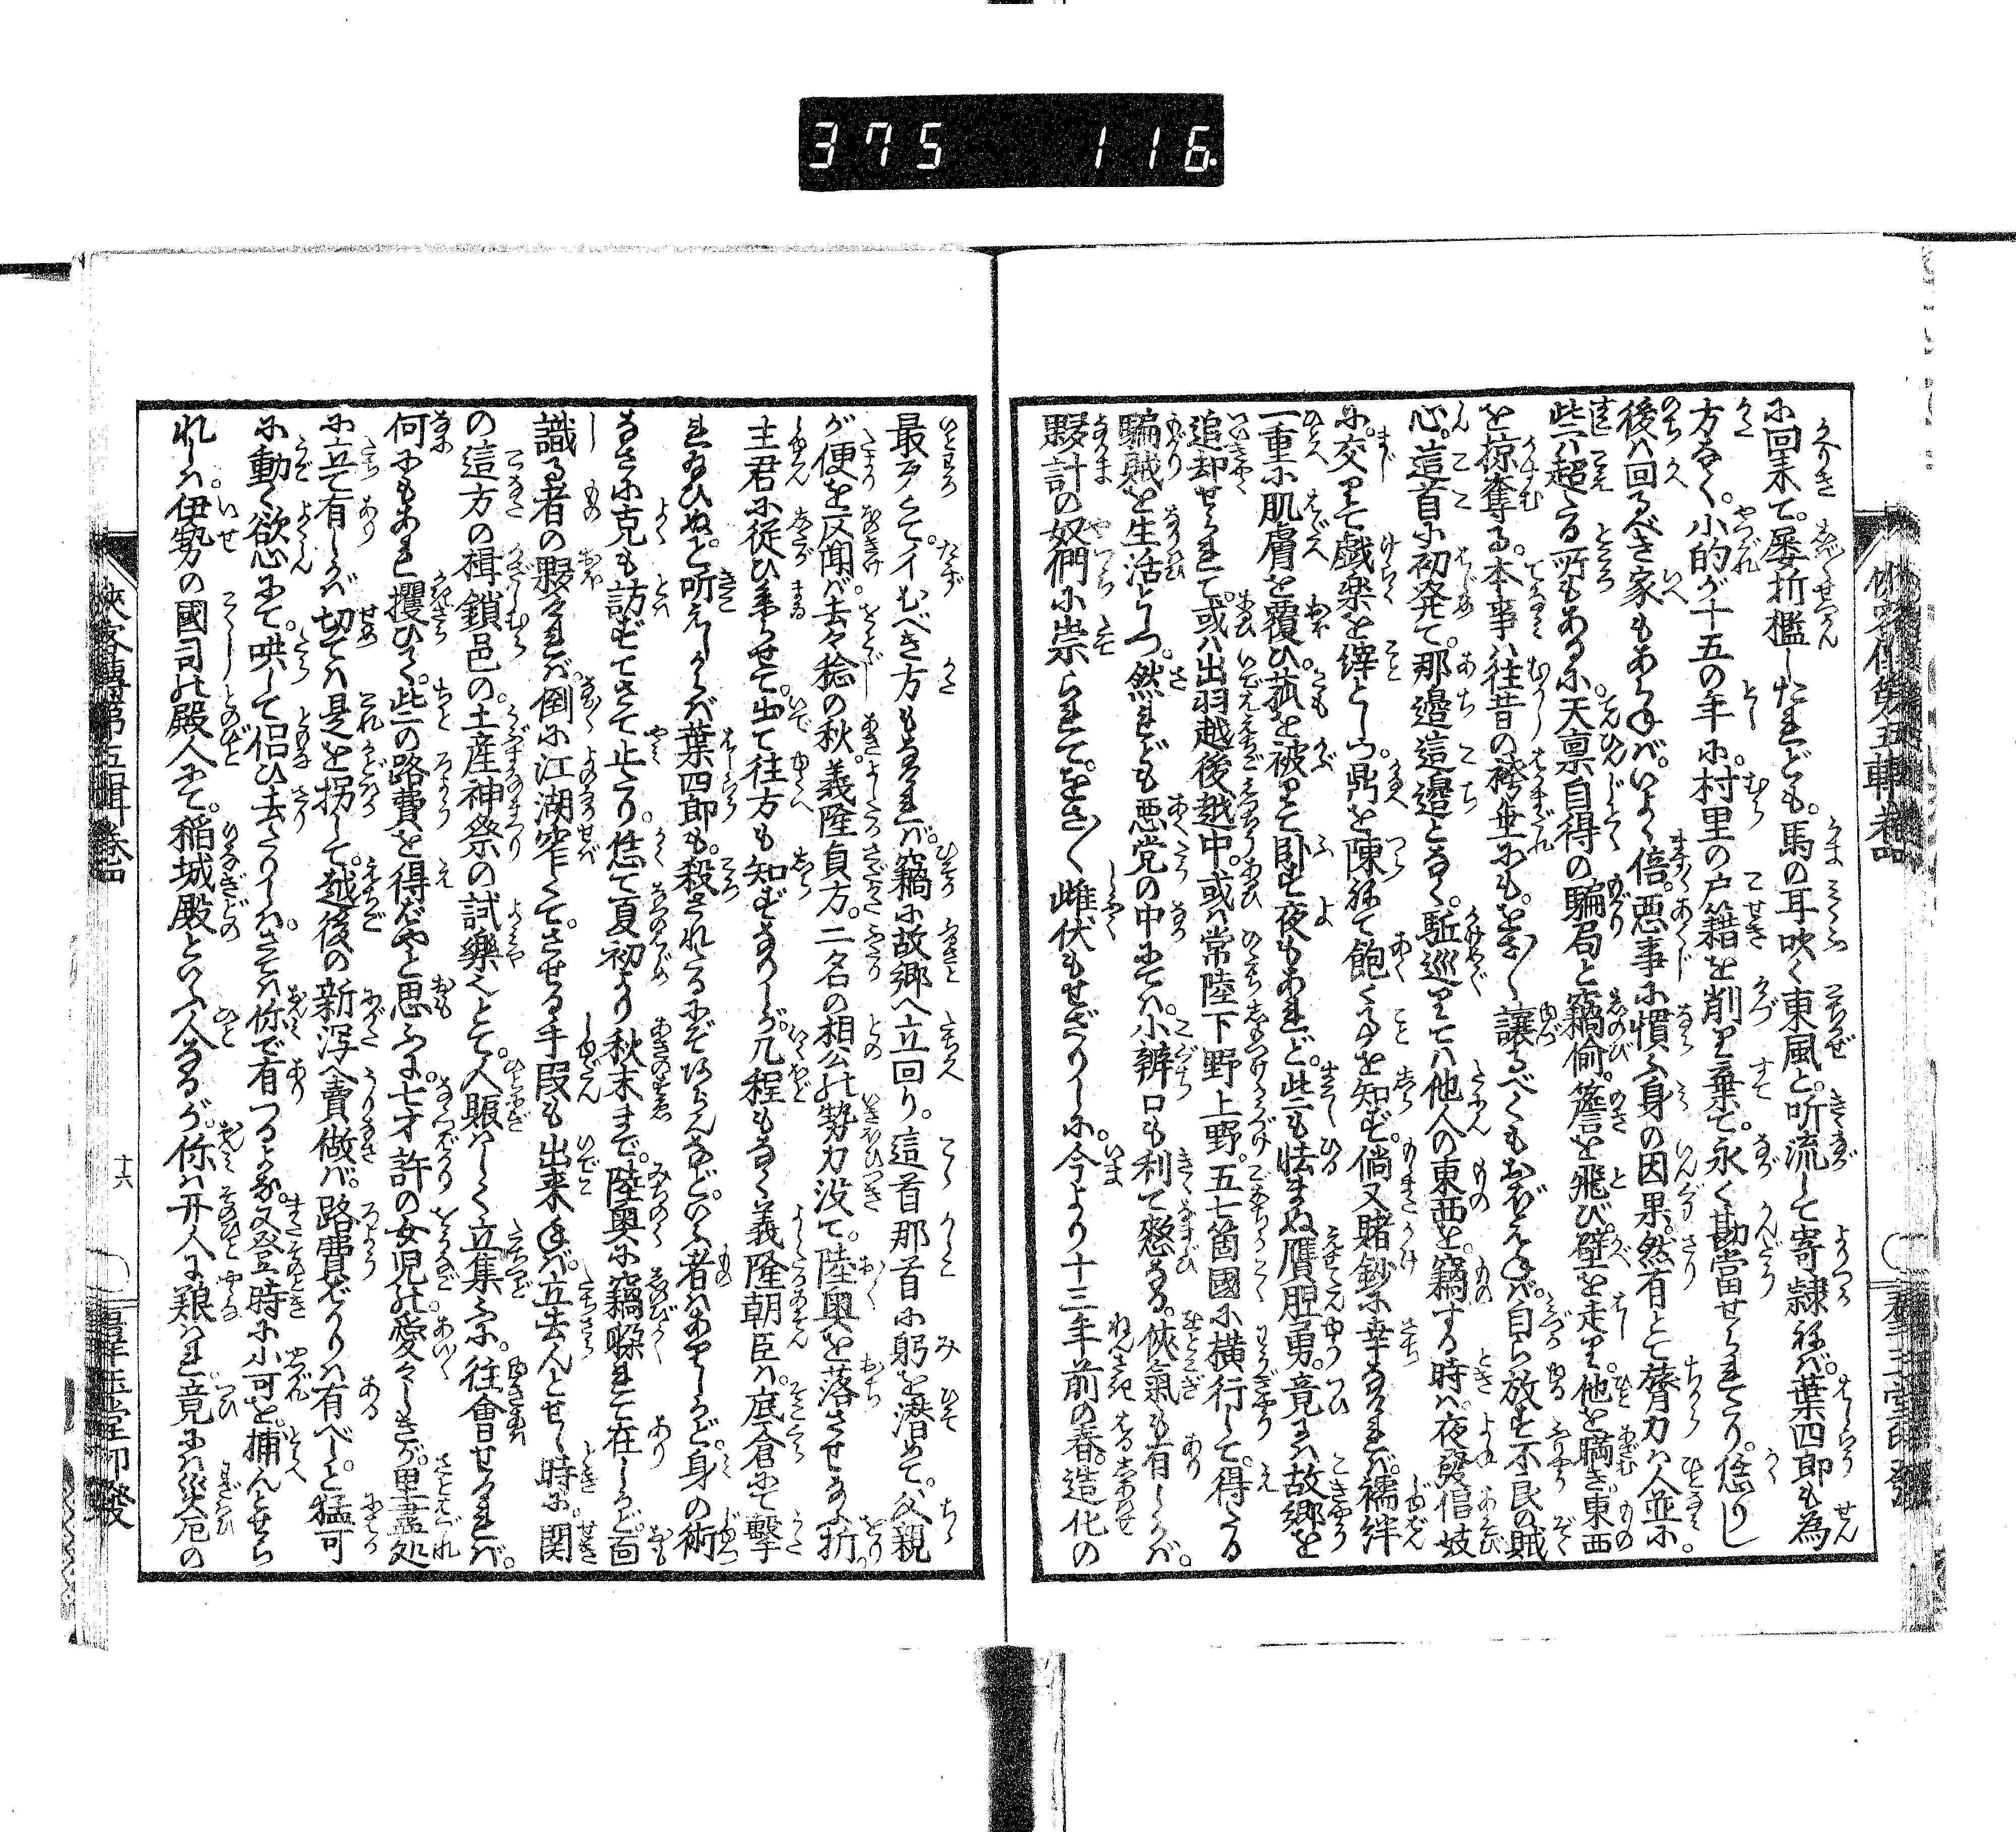 375 116
に回来て。屡折檻したれども。馬の耳吹く東風と。听流して寄隷ねば。葉四郎も為
方なく。小的が十五の年に。村里の戸籍を削り棄て。永く勘當せられたり。恁りし
後は回るべき家もあらねば。いよゝ倍。悪事に慣ふ身の因果。然有とて膂力は人並に。
些は超たる所もあるに。天禀自得の騙局と竊偷。簷を飛び壁を走り。他を瞞き東西
を掠奪る。本事は往昔の袴垂にも。をさ〳〵讓るべくもおぼえねば。自ら放す不良の賊
心。這首に初発て。那邉這邉となく。駈巡りては他人の東西を。竊する時は。夜發倡妓
に。交りて戯樂を縡とし。鼎を陳ねて飽くことを知ず。倘又賭鈔に幸なければ。襦絆
一重に肌膚を覆ひ。菰を被りて卧す夜もあれど。些も怯まぬ贋膽勇。竟には故郷を
追却せられて。或は出羽越後越中。或は常陸下野上野。五七箇國に横行して。得たる
騙賊を生活としつ。然れども悪党の中にては。小辨口も利て憖なる。俠氣も有しかば。
夥計の奴們に崇られて。をさ〳〵雌伏もせざりしに。今より十三年前の春。造化の
最歹くて。イむべき方もなければ。竊に故郷へ立回り。這首那首に躬を潜めて。父親
が便を反聞ば。去々稔の秋。義隆貞方。二名の相公の勢力没て。陸奥を落させ給ふ折。
主君に従ひまゐらせて。出て往方も知ずなりしが。几程もなく義隆朝臣は。底倉にて撃
れ給ひぬと听えしかば。葉四郎も。殺されたるにぞあらんなど。いふ者はありしかど。身の術
なさに克も訪ずてさて止たり。恁て夏初より秋末まで。陸奥に竊躱れて在しかど。面
識る者の夥ければ。倒に江湖窄くて。させる手段も出来ねば。立去んとせし時に。関
の這方の楫鎖邑の。土産神祭の試樂也とて。人賑はしく立集ふに。往會せたれば。
何にもあれ攫ひて。些の路費を得ばやと思ふに。七才許の女児の。愛々しきが。里盡処
に立て有しかば。切ては是を拐して。越後の新泻へ賣做ば。路費ばかりは有べしと。猛可
に動く欲心にて。哄して侶ひ去たりしは。さては你で有つるよな。又登時に小可を。捕んとせら
れしは。伊勢の國司の殿人にて。稲城殿といふ人なるが。你は开人に疑はれ。竟には災厄の
俠客傳第五輯巻四
十六